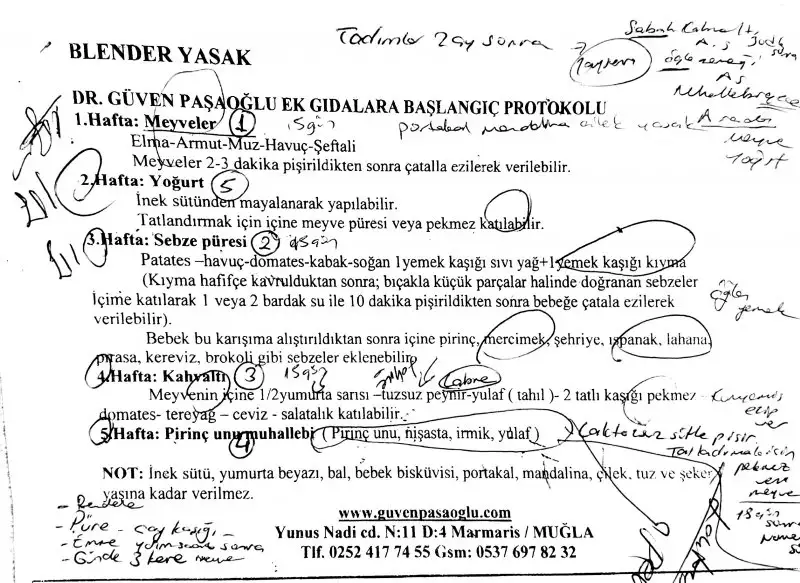 Tadımlar 2 ay sonra
Sabah Kahvaltı
BLENDER YASAK
öğle yemeği
DR. GÜVEN PAŞAOĞLU EK GIDALARA BAŞLANGIÇ PROTOKOLU
1.Hafta: Meyveler 1 15 gün
portakal mandalina çilek yasak
Elma-Armut-Muz-Havuç-Şeftali
Meyveler 2-3 dakika pişirildikten sonra çatalla ezilerek verilebilir.
2.Hafta: Yoğurt 5
İnek sütünden mayalanarak yapılabilir.
Tatlandırmak için içine meyve püresi veya pekmez katılabilir.
3.Hafta: Sebze püresi 2 15 gün
Patates –havuç-domates-kabak-soğan 1yemek kaşığı sıvı yağ+1yemek kaşığı kıyma
(Kıyma hafifçe kavrulduktan sonra; bıçakla küçük parçalar halinde doğranan sebzeler
İçime katılarak 1 veya 2 bardak su ile 10 dakika pişirildikten sonra bebeğe çatala ezilerek
verilebilir).
öğlen yemek
Bebek bu karışıma alıştırıldıktan sonra içine pirinç, mercimek, şehriye, ıspanak, lahana,
pırasa, kereviz, brokoli gibi sebzeler eklenebilir.
4.Hafta: Kahvaltı 3 15 gün
Meyvenin içine 1/2yumurta sarısı –tuzsuz peynir-yulaf ( tahıl )- 2 tatlı kaşığı pekmez -
domates- tereyağ – ceviz - salatalık katılabilir.
5.Hafta: Pirinç unu muhallebi (Pirinç unu, nişasta, irmik, yulaf ) 4
NOT: İnek sütü, yumurta beyazı, bal, bebek bisküvisi, portakal, mandalina, çilek, tuz ve şeker
yaşına kadar verilmez.
www.guvenpasaoglu.com
Yunus Nadi cd. N:11 D:4 Marmaris / MUĞLA
Tlf. 0252 417 74 55 Gsm: 0537 697 82 32
- Rendele
- Püre - çay kaşığı
- Günde 3 kere meyve